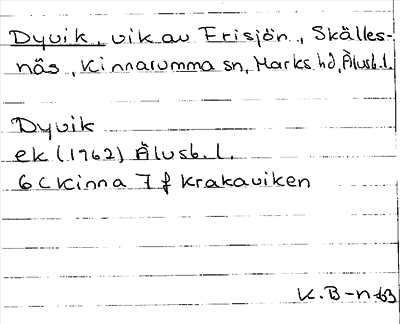 Dyvik, vik av Frisjön, Skälles-
näs, Kinnarumma sn, Marks hd, Älvsb.l.
Dyvik
ek (1962) Älvsb.l.
6 C Kinna 7 f Krakaviken
K.B-n 63